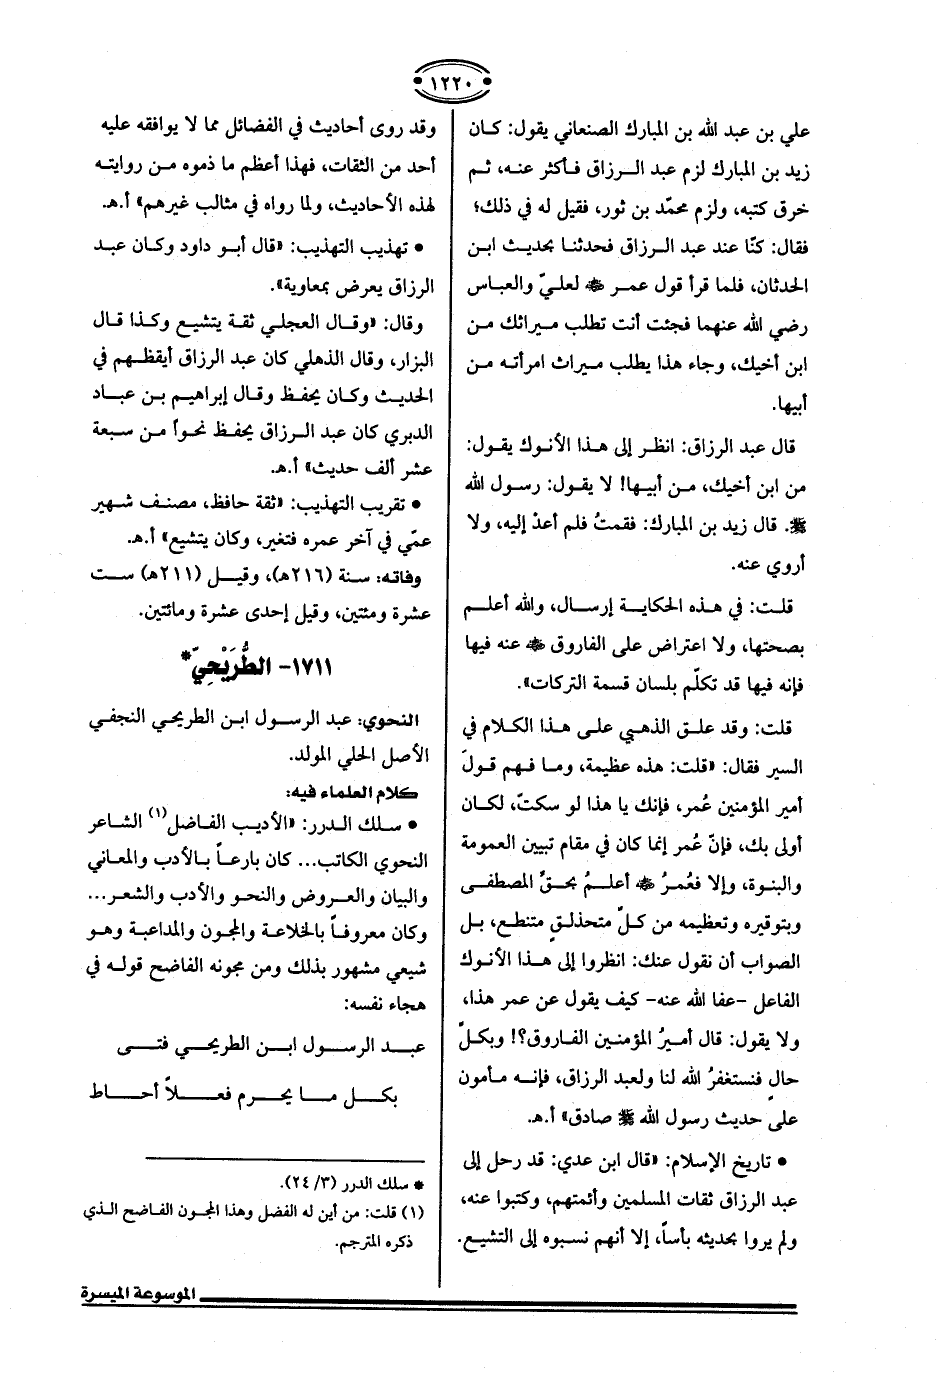 ١٢٢٠
علي بن عبد الله بن المبارك الصنعاني يقول: كان
زيد بن المبارك لزم عبد الرزاق فأكثر عنه، ثم
خرق كتبه، ولزم محمّد بن ثور، فقيل له في ذلك؛
فقال: كنّا عند عبد الرزاق فحدثنا بحديث ابن
الحدثان، فلما قرأ قول عمر ﷺ لعليّ والعباس
رضي الله عنهما فجئت أنت تطلب ميراثك من
ابن أخيك، وجاء هذا يطلب ميراث امرأته من
أبيها.
قال عبد الرزاق: انظر إلى هذا الأنوك يقول:
من ابن أخيك، من أبيها! لا يقول: رسول الله
ﷺ. قال زيد بن المبارك: فقمتُ فلم أعدْ إليه، ولا
أروي عنه.
قلت: في هذه الحكاية إرسال، والله أعلم
بصحتها، ولا اعتراض على الفاروق ﷺ عنه فيها
فإنه فيها قد تكلّم بلسان قسمة التركات».
قلت: وقد علق الذهبي على هذا الكلام في
السير فقال: «قلت: هذه عظيمة، وما فهم قولَ
أمير المؤمنين عُمر، فإنك يا هذا لو سكتّ، لكان
أولى بك، فإنّ عُمر إنما كان في مقام تبيين العمومة
والبنوة، وإلا فعُمرُ ﷺ أعلمُ بحقِّ المصطفى
وبتوقيره وتعظيمه من كلّ متحذلقٍ متنطع، بل
الصواب أن نقول عنك: انظروا إلى هذا الأنوك
الفاعل -عفا الله عنه- كيف يقول عن عمر هذا،
ولا يقول: قال أميرُ المؤمنين الفاروق؟! وبكلِّ
حالٍ فنستغفرُ الله لنا ولعبد الرزاق، فإنه مأمون
على حديث رسول الله ﷺ صادق» أ.هـ.
• تاريخ الإسلام: «قال ابن عدي: قد رحل إلى
عبد الرزاق ثقات المسلمين وأئمتهم، وكتبوا عنه،
ولم يروا بحديثه بأساً، إلا أنهم نسبوه إلى التشيع.
وقد روى أحاديث في الفضائل مما لا يوافقه عليه
أحد من الثقات، فهذا أعظم ما ذموه من روايته
لهذه الأحاديث، ولما رواه في مثالب غيرهم» أ.هـ.
• تهذيب التهذيب: «قال أبو داود وكان عبد
الرزاق يعرض بمعاوية».
وقال: «وقال العجلي ثقة يتشيع وكذا قال
البزار، وقال الذهلي كان عبد الرزاق أيقظهم في
الحديث وكان يحفظ وقال إبراهيم بن عباد
الدبري كان عبد الرزاق يحفظ نحواً من سبعة
عشر ألف حديث» أ.هـ.
• تقريب التهذيب: «ثقة حافظ، مصنف شهير
عمّي في آخر عمره فتغير، وكان يتشيع» أ.هـ.
وفاته: سنة (٢١٦هـ)، وقيل (٢١١هـ) ست
عشرة ومئتين، وقيل إحدى عشرة ومائتين.
١٧١١- الطُّرَيْحِيّ*
النحوي: عبد الرسول ابن الطريحي النجفي
الأصل الحلي المولد.
كلام العلماء فيه:
• سلك الدرر: «الأديب الفاضل(١) الشاعر
النحوي الكاتب... كان بارعاً بالأدب والمعاني
والبيان والعروض والنحو والأدب والشعر...
وكان معروفاً بالخلاعة والمجون والمداعبة وهو
شيعي مشهور بذلك ومن مجونه الفاضح قوله في
هجاء نفسه:
عبد الرسول ابن الطريحي فتى
بكل ما يحرم فعلاً أحاط
* سلك الدرر (٣/ ٢٤).
(١) قلت: من أين له الفضل وهذا المجون الفاضح الذي
ذكره المترجم.
الموسوعة الميسرة